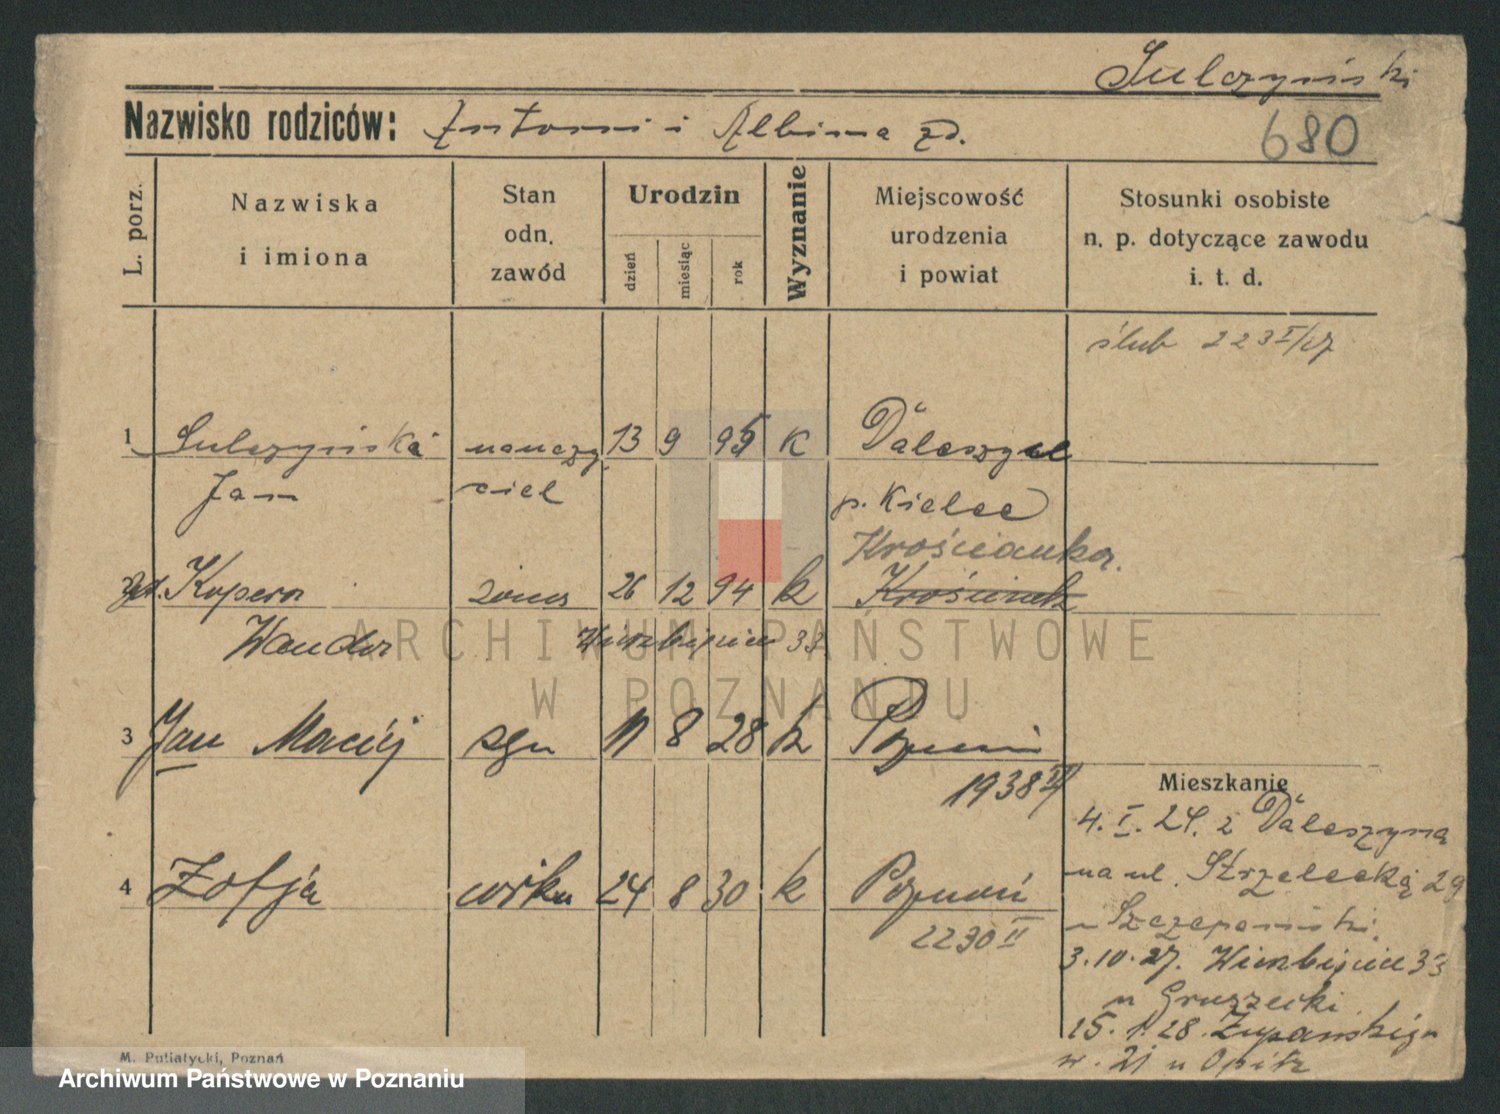 Sulczyński
Nazwisko rodziców: Antoni i Albina zd.
680
L. porz.
Nazwiska
i imiona
Stan
odn.
zawód
Urodzin
dzień
miesiąc
rok
Wyznanie
Miejscowość
urodzenia
i powiat
Stosunki osobiste
n. p. dotyczące zawodu
i. t. d.
ślub 223 I/27
1 Sulczyński nauczy 13 9 95 K Daleszyce
Jan ciel p. Kielce
Krościanka.
2 zd. Kopera żona 26 12 94 k
Wanda Wierzbięcice 33
3 Jan Maciej syn 11 8 28 k Poznań
1938
Mieszkanie
4. I. 24. z Daleszyna
na ul. Strzelecką 29
u Szczepański
4 Zofja córka 24 8 30 k Poznań
2290 II
3.10.27. Wierzbięcice 33
u Gruszecki
15. 1. 28. Żupańskiego
21 u Opitz
M. Putiatycki, Poznań
Archiwum Państwowe w Poznaniu
ARCHIWUM PAŃSTWOWE
W POZNANIU